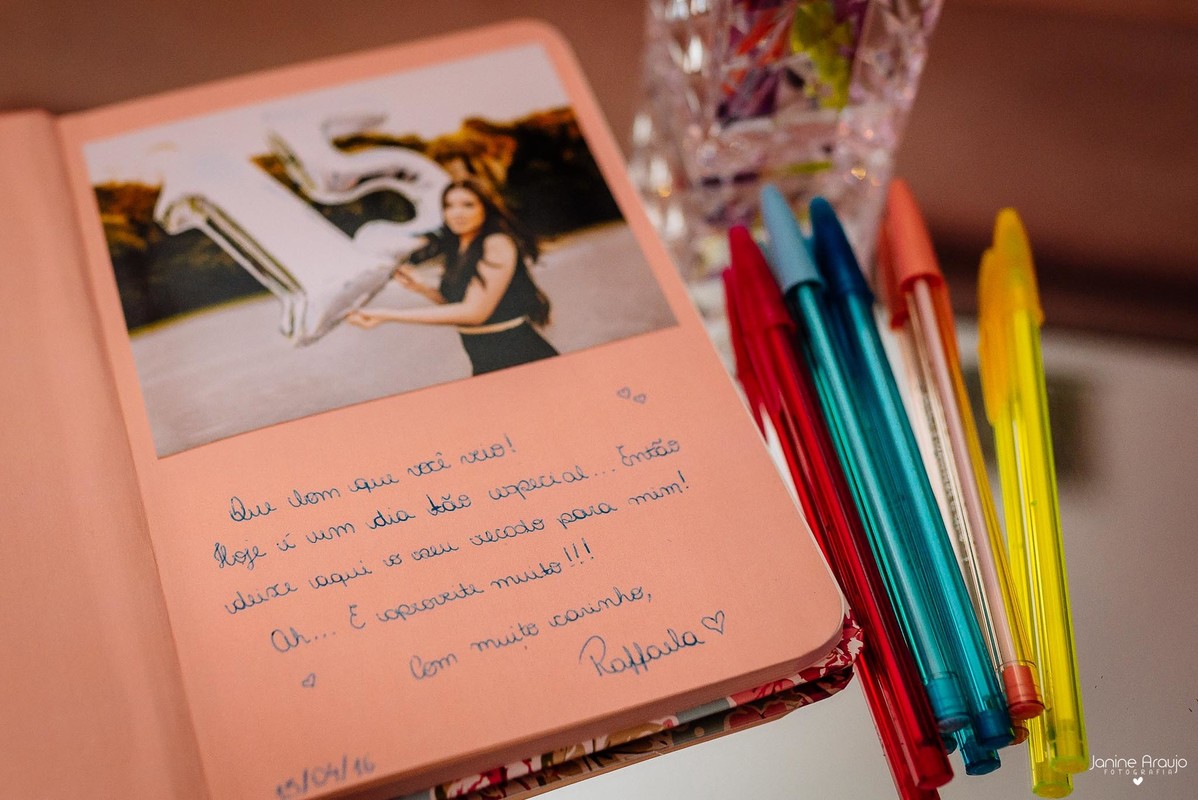 15
Que bom que você veio!
Hoje é um dia tão especial... Então
deixe aqui o seu recado para mim!
Ah... E aproveite muito!!!
Com muito carinho,
Raffaela
15/04/16
Janine Araujo
FOTOGRAFIA